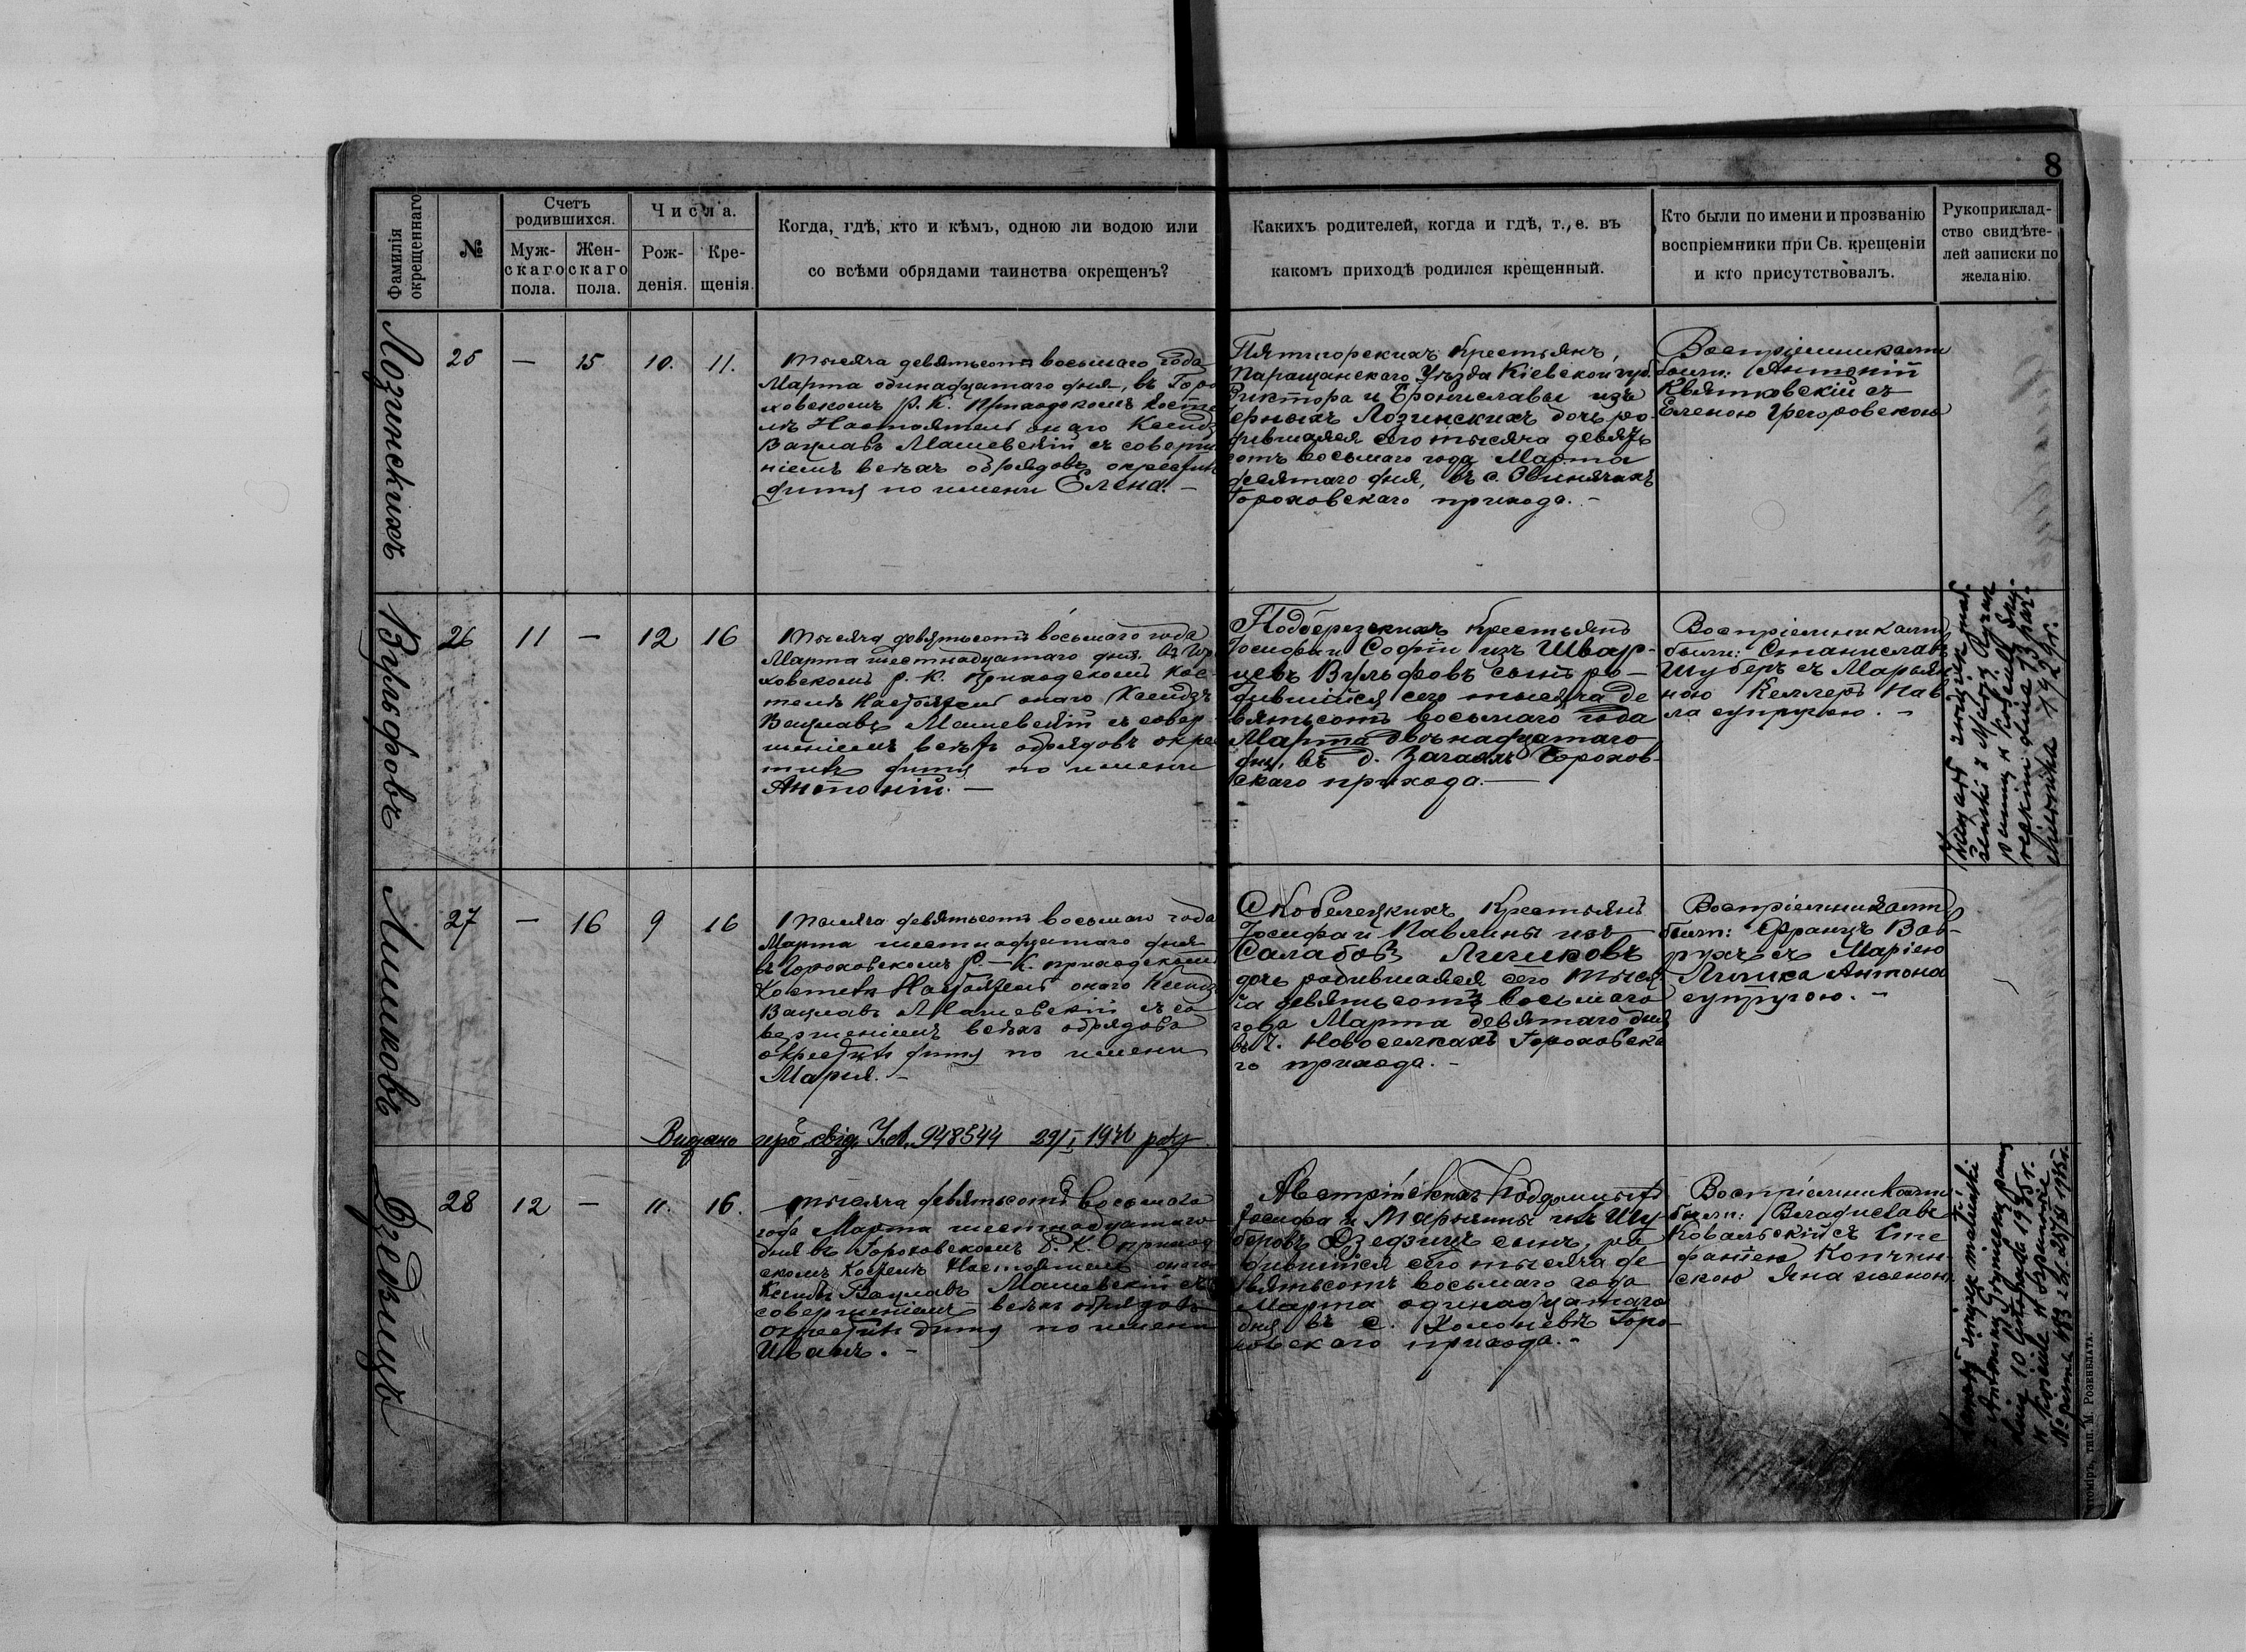 8
Фамилія окрещеннаго
№
Счетъ родившихся.
Мужскаго пола.
Женскаго пола.
Числа.
Рожденія.
Крещенія.
Когда, гдѣ, кто и кѣмъ, одною ли водою или
со всѣми обрядами таинства окрещенъ?
Какихъ родителей, когда и гдѣ, т., е. въ
какомъ приходѣ родился крещенный.
Кто были по имени и прозванію
воспріемники при Св. крещеніи
и кто присутствовалъ.
Рукоприклад-
ство свидѣте-
лей записки по
желанію.
Лозинскихъ
25 — 15 10. 11.
Тысяча девятьсотъ восьмаго года
Марта одинадцатаго дня, въ Горо
ховскомъ Р. К. Приходскомъ Косте
лѣ Настоятель онаго Ксендз
Вацлавъ Машевскій съ соверше
ніемъ всѣхъ обрядовъ окрестилъ
дитя по имени Елена. —
Пятигорскихъ Крестьянъ,
Таращанскаго Уѣзда Кіевской губ.
Виктора и Брониславы изъ
Черныхъ Лозинскихъ дочь ро-
дившаяся сего тысяча девять
сотъ восьмаго года Марта
десятаго дня, въ с. Звинячахъ
Гороховскаго прихода. —
Воспріемниками
были: Антоній
Квятковскій съ
Еленою Грегоровскою
Вульфовъ
26 11 — 12 16
Тысяча девятьсотъ восьмаго года
Марта шестнадцатаго дня въ Горо
ховскомъ Р. К. Приходскомъ Кос-
телѣ Настоятель онаго Ксендзъ
Вацлавъ Машевскій съ совер-
шеніемъ всѣхъ обрядовъ окре
стилъ дитя по имени
Антоній. —
Подберезскихъ Крестьянъ
Іосифа и Софіи изъ Швар-
цевъ Вульфовъ сынъ ро-
дившійся сего тысяча де
вятьсотъ восьмаго года
Марта двѣнадцатаго
дня, въ д. Загаяхъ Горохов-
скаго прихода. —
Воспріемниками
были: Станиславъ
Шуберъ съ Марьян
ною Келлеръ Пав
ла супругою. —
1929 r.
Лишковъ
27 — 16 9 16
Тысяча девятьсотъ восьмаго года
Марта шестнадцатаго дня
въ Гороховскомъ Р. — К. приходскомъ
Костелѣ Настоятель онаго Ксендз
Вацлавъ Машевскій съ со
вершеніемъ всѣхъ обрядовъ
окрестилъ дитя по имени
Марія. —
Скобелецкихъ Крестьянъ
Іосифа и Павлины изъ
Салабовъ Лишковъ
дочь родившаяся сего тыся
ча девятьсотъ восьмаго
года Марта девятаго дня
въ ч. Новоселкахъ Гороховска
го прихода. —
Воспріемниками
были: Францъ
съ Маріею
Лишка Антона
супругою. —
Видано свід. 948544 29/I 194 року
Дзедзицъ
28 12 — 11. 16.
Тысяча девятьсотъ восьмаго
года Марта шестнадцатаго
дня въ Гороховскомъ Р. К. приход
скомъ Костелѣ Настоятель онаго
Ксендзъ Вацлавъ Машевскій съ
совершеніемъ всѣхъ обрядовъ
окрестилъ дитя по имени
Иванъ. —
Австрійскихъ Подданныхъ
Іосифа и Марьянны изъ Шу-
беровъ Дзедзицъ сынъ, ро
дившійся сего тысяча де
вятьсотъ восьмаго года
Марта одинадцатаго
дня въ с. Холоневѣ Горо
ховскаго прихода. —
Воспріемниками
были: Владиславъ
Ковальскійсъ Сте
фаніею Копчин-
скою Яна женою.
10 listopada 1935 r.
тип. М. Розенблата.